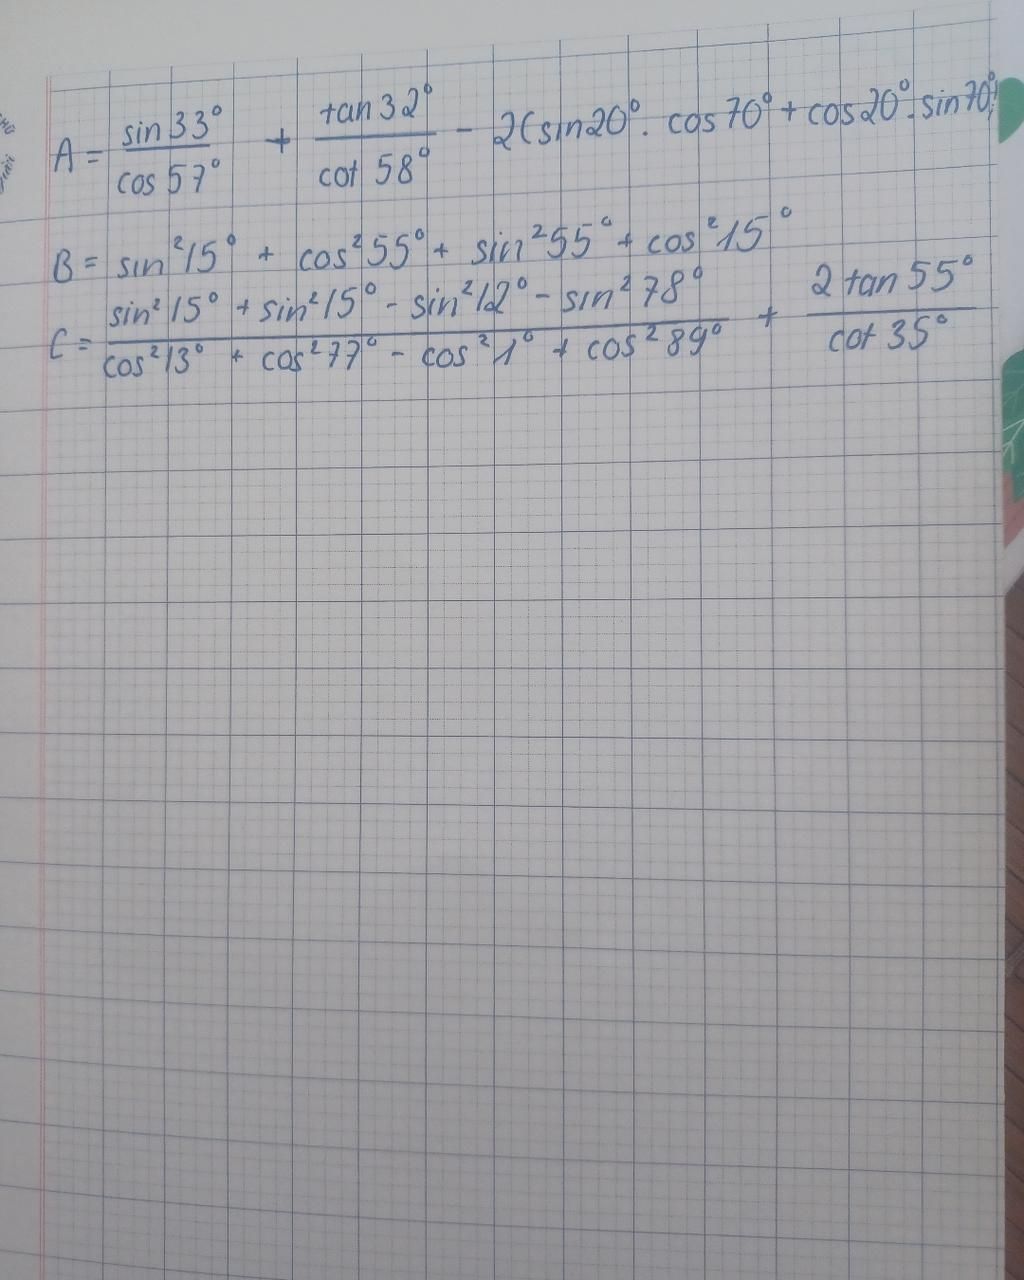 A = sin33° / cos57° + tan32° / cot58° - 2(sin20° . cos70° + cos20° . sin70°)
B = sin²15° + cos²55° + sin²55° + cos²15°
C = sin²15° + sin²15° - sin²12° - sin²78° / cos²13° + cos²77° - cos²1° + cos²89° + 2 tan55° / cot35°